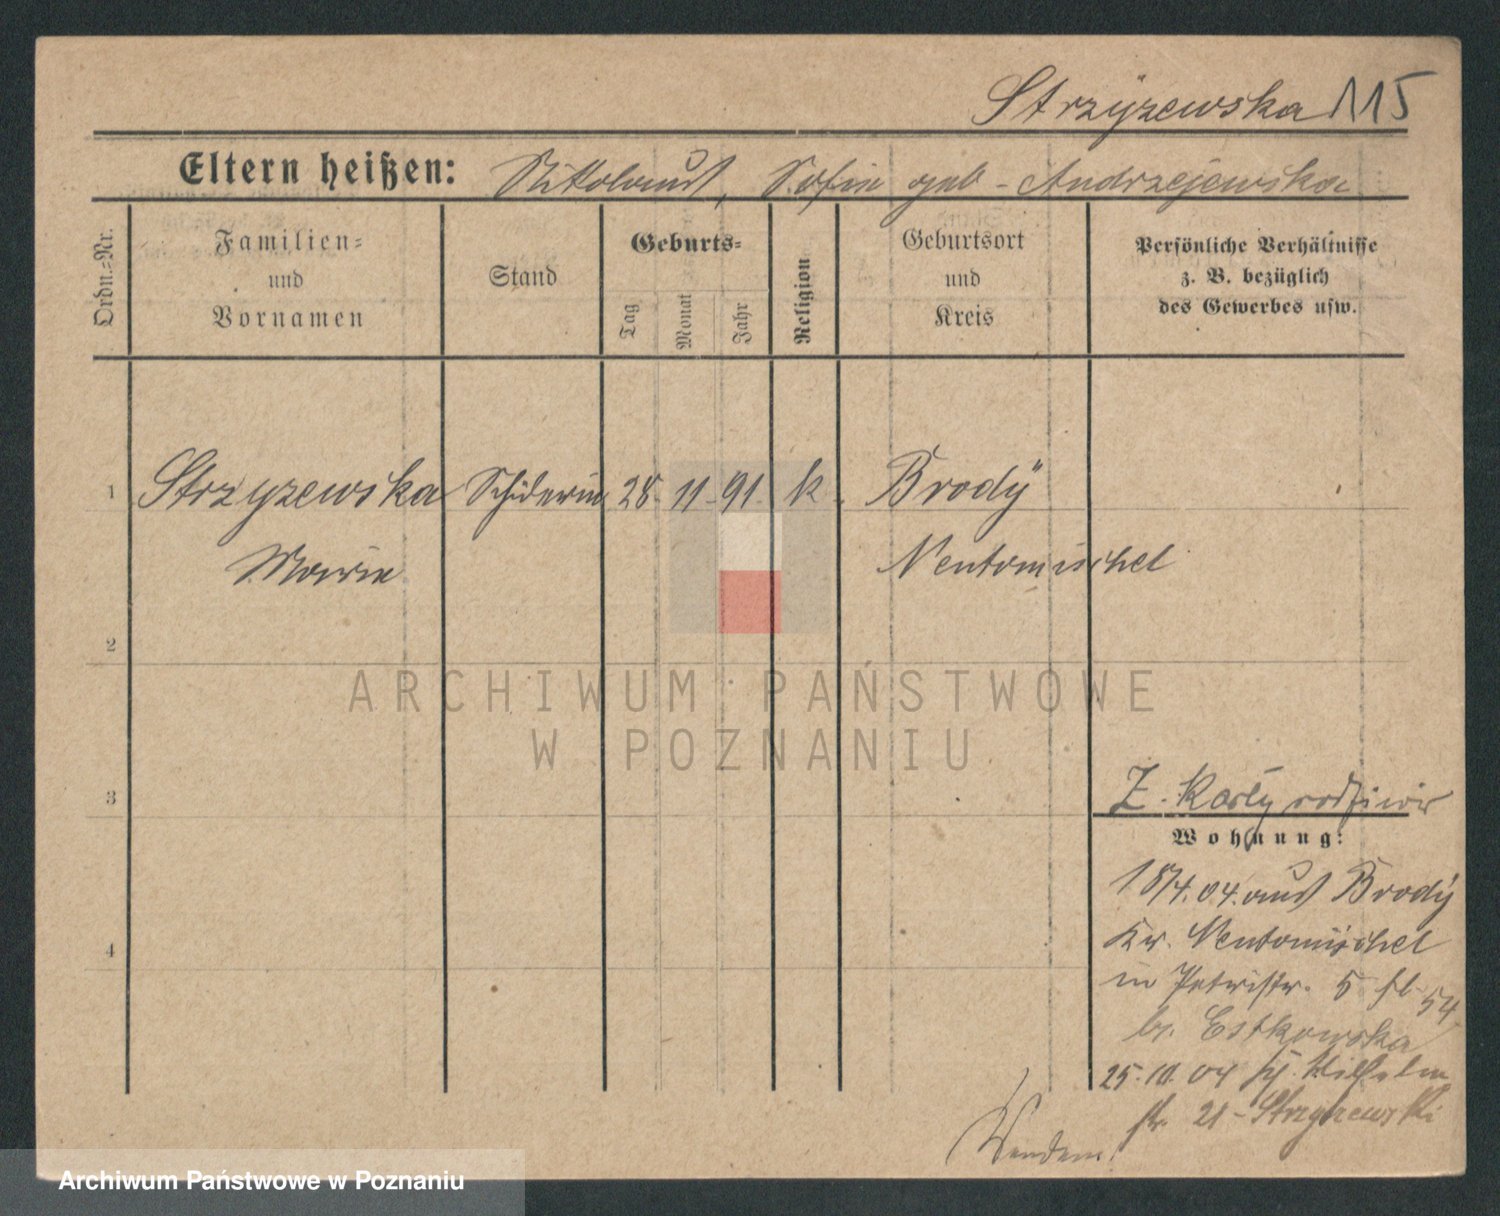 Strzyżewska 115
Eltern heißen: Nikolaus, Sofie geb - Andrzejewska
Ordn.-Nr.
Familien-
und
Vornamen
Stand
Geburts-
Tag
Monat
Jahr
Religion
Geburtsort
und
Kreis
Persönliche Verhältnisse
z. B. bezüglich
des Gewerbes usw.
1 Strzyzewska 28. 11. 91. k. Brody
Marie Neutomischel
2
3
4
Z. Karty
Wohnung:
18/4. 04. aus Brody
Kr. Neutomischel
in Petristr. 5
b. Estkowska
25. 10. 04 Wilhelm
str. 21 - Strzyzewski
Wenden!
ARCHIWUM PAŃSTWOWE
W POZNANIU
Archiwum Państwowe w Poznaniu